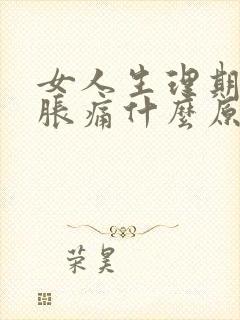 女人生理期
脹痛什麼原
荣昊